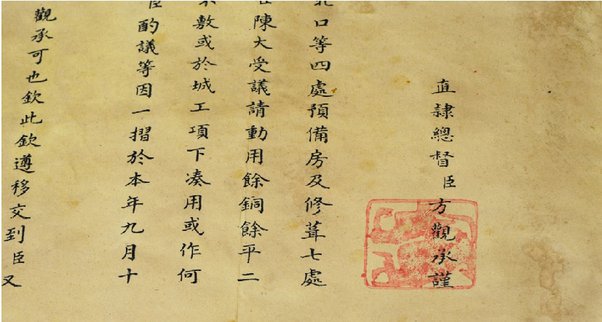 直隸總督臣方觀承謹
北口等四處預備房及修葺七處
陳大受議請動用餘銅餘平二
敷或於城工項下湊用或作何
臣酌議等因一摺於本年九月十
觀承可也欽此欽遵移交到臣又